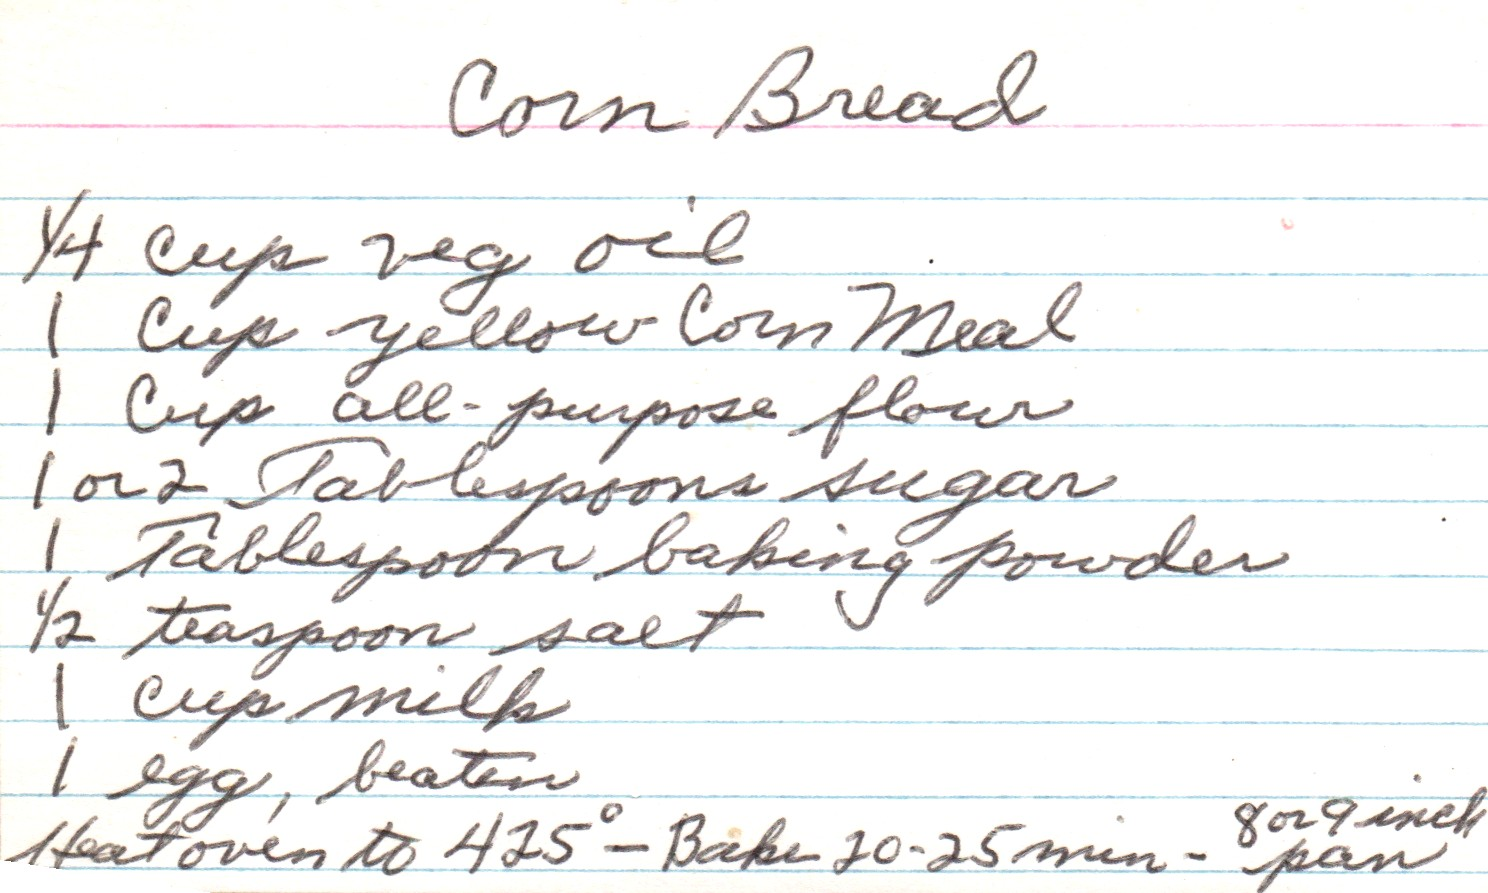 Corn Bread
1/4 cup veg oil
1 Cup yellow Corn Meal
1 Cup all-purpose flour
1 or 2 Tablespoons sugar
1 Tablespoon baking powder
1/2 teaspoon salt
1 cup milk
1 egg, beaten
Heat oven to 425° - Bake 20-25 min - 8 or 9 inch pan